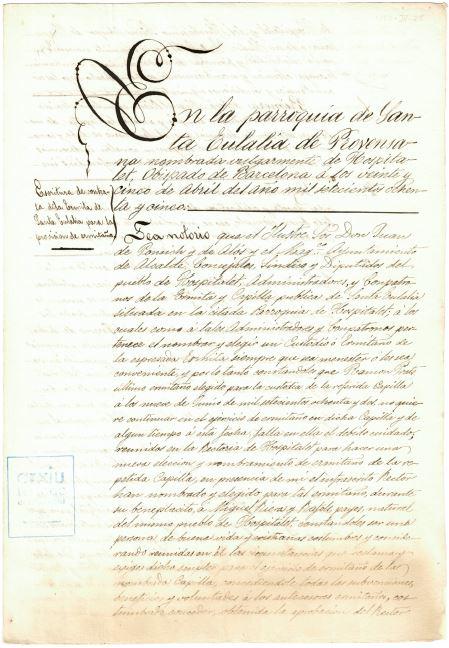 En la parroquia de San-
ta Eulalia de Provensa-
na nombrada vulgarmente de Hospita-
let, Obispado de Barcelona á los veinte y
cinco de Abril del año mil setecientos ochen-
ta y cinco.
Escritura de contra-
ta de la Ermita de
Santa Eulalia para la
provision de ermitaño
Sea notorio que el Ilustre Sor Don Juan
de y de Alós y el Magco Ayuntamiento
de Alcalde, Concejales, Sindico y Diputados del
pueblo de Hospitalet, Administradores, y Compatro-
nos de la Ermita y Capilla publica de Santa Eulalia
situada en la citada Parroquia de Hospitalet, á los
cuales como á tales Administradores y Compatronos per-
tenece el nombrar y elegir un Custodio ó Ermitaño de
la expresada Ermita siempre que sea menester ó les sea
conveniente, y por lo tanto constandoles que Ramon
ultimo ermitaño elegido para la custodia de la referida Capilla
á los nueve de Junio de mil setecientos ochenta y dos, no quie-
re continuar en el ejercicio de ermitaño en dicha Capilla y de
algun tiempo á esta fecha, falta en ella el debido cuidado;
reunidos en la Rectoria de Hospitalet para hacer una
nueva eleccion y nombramiento de ermitaño de la re-
petida Capilla, en presencia de mi el infrascrito Rector
han nombrado y elegido para tal ermitaño, durante
su beneplacito, á Miguel Rivas y payes, natural
del mismo pueblo de Hospitalet, constandoles ser una
persona de buena vida y cristianas costumbres y conside-
rando reunidas en él las circunstancias que reclama y
exige dicho empleo para el ejercicio de ermitaño de la
nombrada Capilla, concediendole todas las subvenciones,
beneficios y voluntades á los antecesores ermitaños, cos-
tumbrado conceder, obtenida la aprobacion del Rector